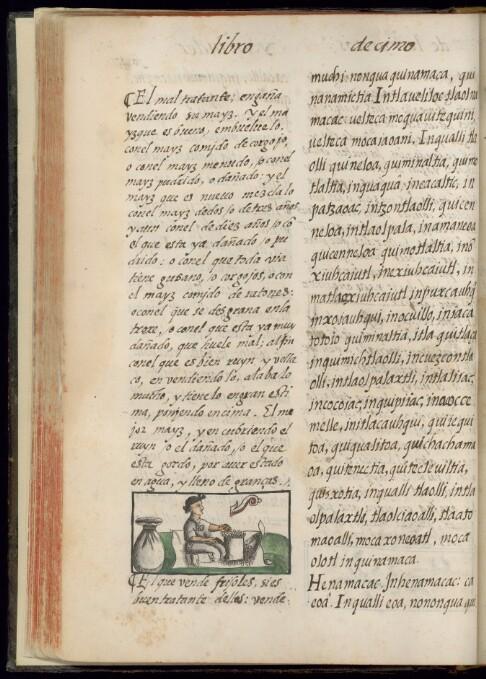 libro decimo
¶El mal tratante, engaña
vendiendo su mayz. Y el ma
yz que es bueno, embueluelo,
con el mayz comjdo de corgojo,
o con el mayz menudo, o con el
mayz pudrido, o dañado: y el
mayz que es nueuo mezclalo
con el mayz de dos, o de tres años
y aun con el de diez años, o co
el que esta ya dañado o pu
drido: o con el que toda via
tiene gusano, o corgojos, o con
el mayz comjdo de ratones:
o con el que se desgrana en la
troxe, o con el que esta ya muy
dañado, que huele mal; al fin
con el que es bien ruyn y vella
co, en vendiendolo, alabalo
mucho, y tienelo en gran esti
ma, ponjendo encima. El me
jor mayz, y encubriendo el
ruyn o el dañado, o el que
esta gordo, por auer estado
en agua, y lleno de granças.
¶El que vende frisoles, si es
buen tratante dellos: vende
muchi nonqua quinamaca, qui
nanamictia. Intlaveliloc tlaolna
macac velteca moquavitequini,
velteca mocaiaoani. Inqualli tla
olli quineloa, quiminaltia, quimo
tlaltia, inquaqua ineacaltic, in
patzaoac, intzontlaolli, quicen
neloa, intlaolpala, inamaneoa
quicenneloa quimotlaltia, ino
xiuhcaiutl, inexiuhcaiutl, in
matlacxiuhcaiutl inpuxcauhq
inxoiauhqui, inocuillo, iniaca
totoio quiminaltia, itla quitlaça
inquimichtlaolli, incuezcontla
olli, intlaolpalaxtli, intlaliiac,
incocoiac, inquipiiac, inaocce
melle, initlacauhqui, quitequi
toa, quiqualitoa, quichachama
oa, quitenectia, quitecleviltia,
quixotia, inqualli tlaolli, intla
olpalaxtli, tlaolciaoalli, tlaato
maoalli, mocaxoneoatl, moca
olotl in quinamaca.
Henamacac. Inhenamacac: ca
eoa. Inqualli eoa, nononqua qui